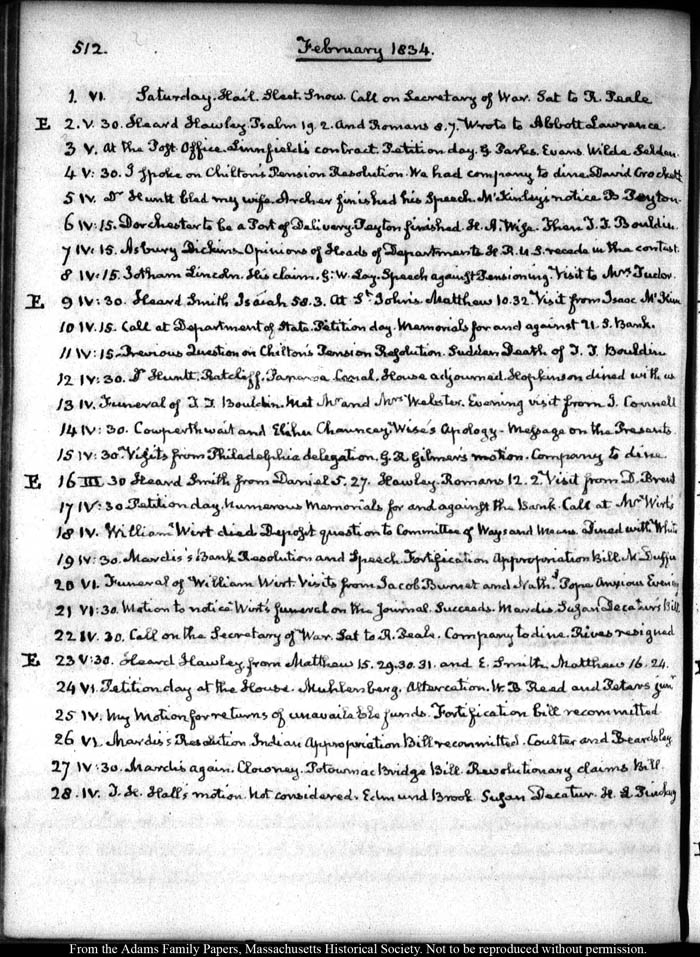 512. February 1834.
1. VI. Saturday. Hail. Sleet. Snow. Call on Secretary of War. Sat to R. Peale
E 2. V. 30. Heard Hawley. Psalm 19. 2. and Romans 8. 7. Wrote to Abbott Lawrence.
3 V. At the Post Office. Linnfield's contract. Petition day. G Parks. Evans. Wilde Selden.
4 V: 30. I spoke on Chilton's Pension Resolution. We had company to dine. David Crockett
5 IV. Dr Huntt bled my wife. Archer finished his Speech. McKinley's notice B. Peyton.
6 IV: 15. Dorchester to be a Port of Delivery. Peyton finished. H. A. Wise. Then T. T. Bouldin.
7 IV: 15. Asbury Dickins. Opinions of Heads of Departments H. R. U. S. recede in the contest.
8 IV: 15. Jotham Lincoln. His claim. G: W. Lay. Speech against Pensioning. Visit to Mrs Tudor.
E 9 IV: 30. Heard Smith Isaiah 58. 3. At St John's Matthew 10. 32. Visit from Isaac McKim
10 IV. 15. Call at Department of State. Petition day. Memorials for and against U. S. Bank.
11 IV: 15. Previous Question on Chilton's Pension Resolution. Sudden Death of T. T. Bouldin
12 IV: 30. Dr Huntt, Ratcliff, Panama Canal. House adjourned. Hopkinson dined with us
13 IV. Funeral of T. T. Bouldin. Met Mr and Mrs Webster. Evening visit from J. Connell
14 IV: 30. Cowperthwait and Elihu Chauncey. Wise's Apology. Message on the Presents.
15 IV: 30. Visits from Philadelphia delegation. G. R. Gilmer's motion. Company to dine.
E 16 III 30 Heard Smith from Daniel 5. 27. Hawley. Romans 12. 2. Visit from D. Brent
17 IV: 30 Petition day. Numerous Memorials for and against the Bank. Call at Mr Wirt's
18 IV. William Wirt died Deposit question to Committee of Ways and Means. Dined with White
19 IV: 30. Mardis's Bank Resolution and Speech. Fortification Appropriation Bill. McDuffie
20 VI. Funeral of William Wirt. Visits from Jacob Burnet and Nathl Pope Anxious Evening
21 VI: 30. Motion to notice Wirt's funeral on the Journal. Succeeds. Mardis. Susan Decatur's Bill
22 IV. 30. Call on the Secretary of War. Sat to R. Peale. Company to dine. Rives resigned
E 23 V: 30. Heard Hawley, from Matthew 15. 29. 30. 31. and E. Smith. Matthew 16. 24.
24 VI. Petition day at the House. Muhlenberg. Altercation. W. B Read and Peters junr
25 IV. My Motion for returns of unavailable funds. Fortification bill recommitted
26 VI. Mardis's Resolution. Indian Appropriation Bill recommitted. Coulter and Beardsley
27 IV: 30. Mardis again. Clowney. Potowmac Bridge Bill. Revolutionary claims Bill.
28. IV. T. H. Hall's motion. Not considered. Edmund Brook. Susan Decatur. H. L Pinckney
From the Adams Family Papers, Massachusetts Historical Society. Not to be reproduced without permission.